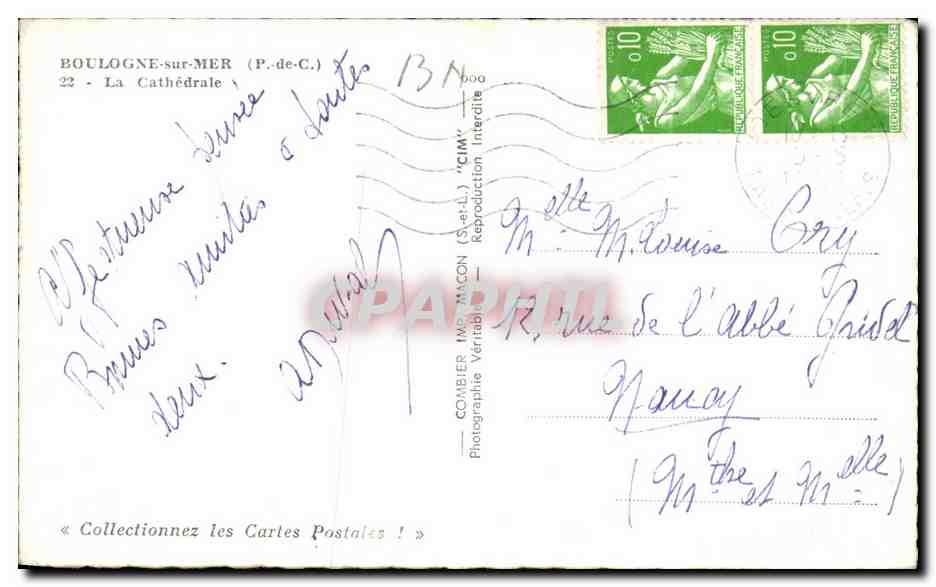 BOULOGNE-sur-MER (P.-de-C.)
22 - La Cathédrale
BN
600
Affectueuse pensée
Bonnes amitiés à toutes
deux.
COMBIER IMP. MACON (S.-et-L.) "CIM"
Photographie Véritable - Reproduction Interdite
POSTES 0,10 REPUBLIQUE FRANÇAISE
POSTES 0,10 REPUBLIQUE FRANÇAISE
CPAPHIL
Melle M. Louise Gry
12, rue de l'abbé Gridel
Nancy
(Mthe et Melle)
« Collectionnez les Cartes Postales ! »